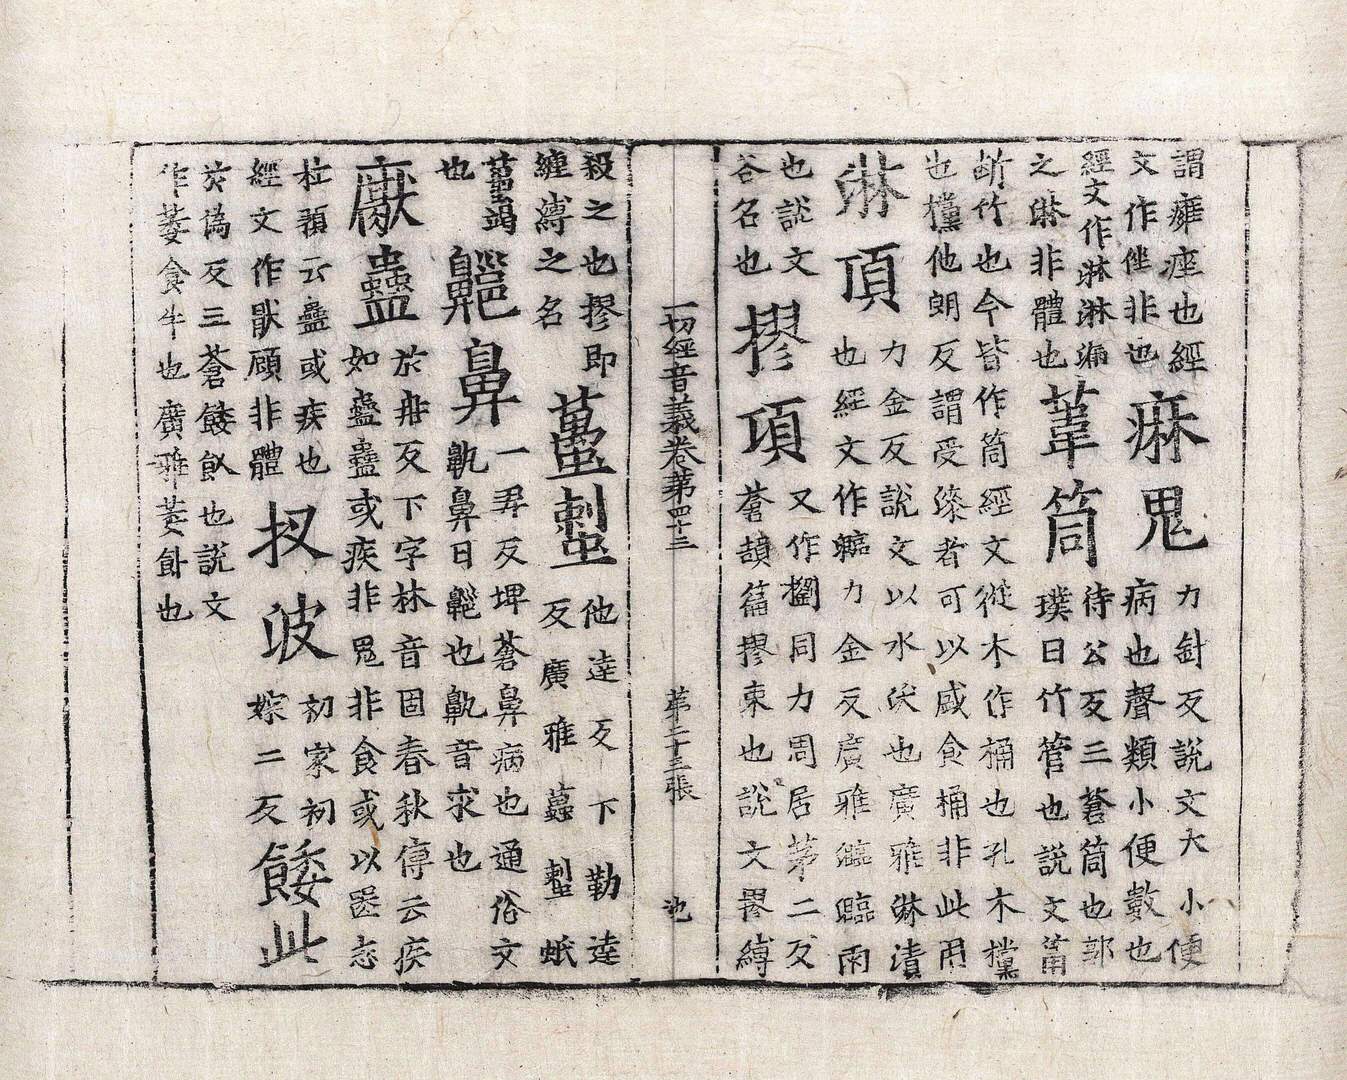 謂癰痤也經
文作痤非也
痳鬼
力針反說文大小便
病也聲類小便數也
經文作淋淋漏
之淋非體也
葦筒
待公反三蒼筒也郭
璞曰竹管也說文筩
斷竹也今皆作筒經文從木作桶也孔木欓
也欓他朗反謂受漆者可以盛食桶非此用
淋頂
力金反說文以水沃也廣雅淋漬
也經文作力金反廣雅雨
也說文
谷名也
摎項
又作同力周居茅二反
蒼頡篇摎束也說文摎縛
一切經音義卷第四十三
第二十三張
池
殺之也摎即
纏縛之名
蠆䗶
他達反下勒達
反廣雅蠆䗶蚔
蠆蝎
也
齆鼻
一弄反埤蒼鼻病也通俗文
鼽鼻曰齆也鼽音求也
厭蠱
於冉反下字林音固春秋傳云疾
如蠱蠱或疾非鬼非食或以匿志
杜預云蠱或疾也
經文作猒顧非體
扠波
初家初
嫁二反
餧此
於偽反三蒼餧飤也說文
作萎食牛也廣雅萎飤也